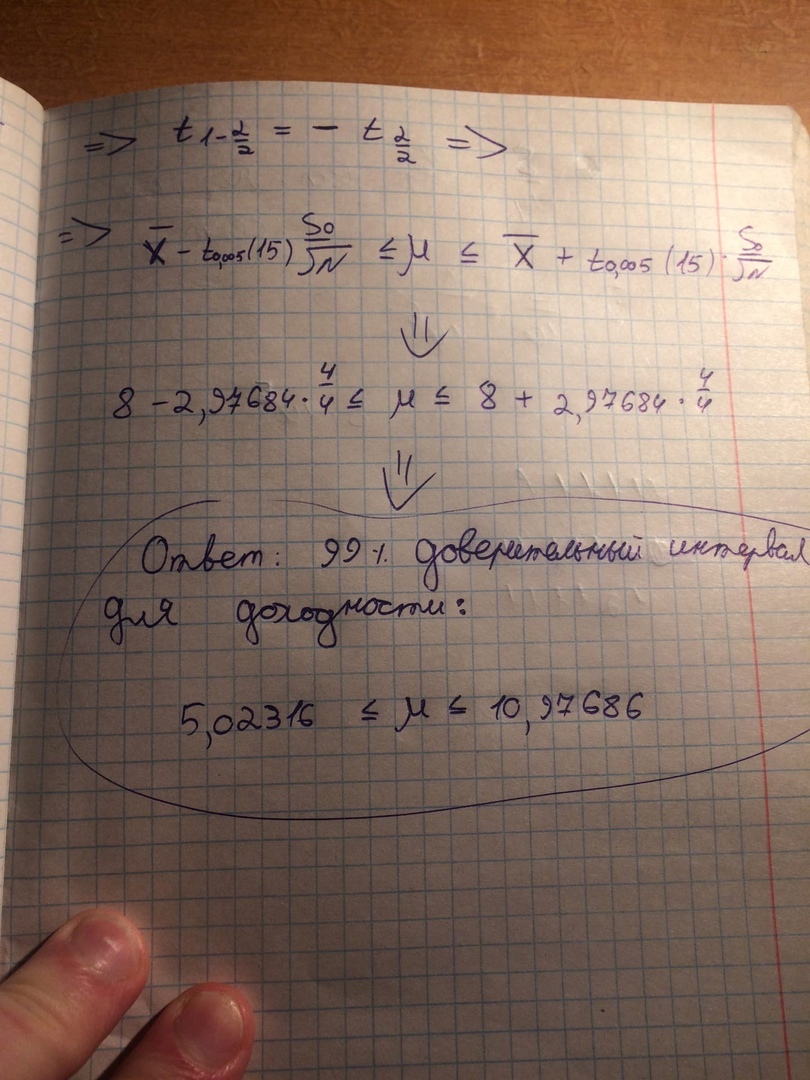 => t 1-α/2 = - t α/2 =>
=> X̅ - t0,005(15) S0/√N ≤ μ ≤ X̅ + t0,005 (15) · S0/√N
⇓
8 - 2,97684 · 4/4 ≤ μ ≤ 8 + 2,97684 · 4/4
⇓
Ответ: 99% доверительный интервал
для доходности:
5,02316 ≤ μ ≤ 10,97686